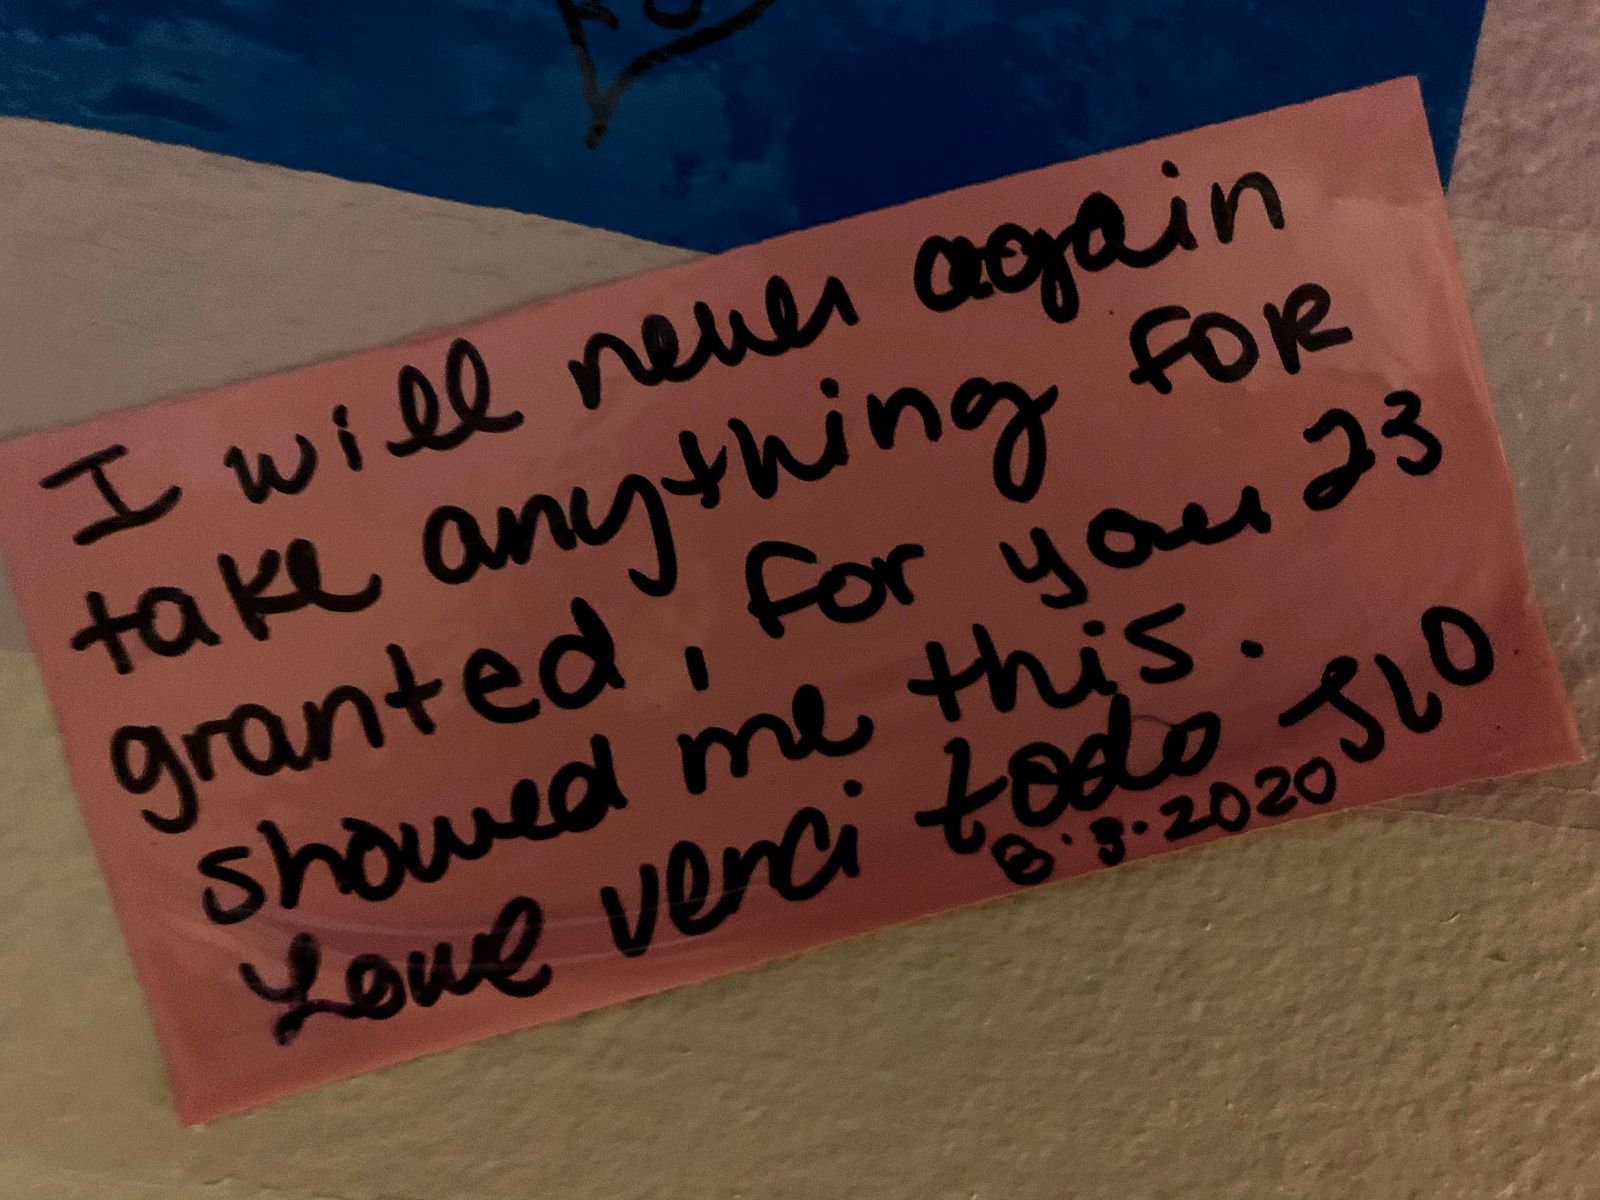 I will never again
take anything FOR
granted, for your 23
showed me this.
Love venci todo JLO
3.3.2020